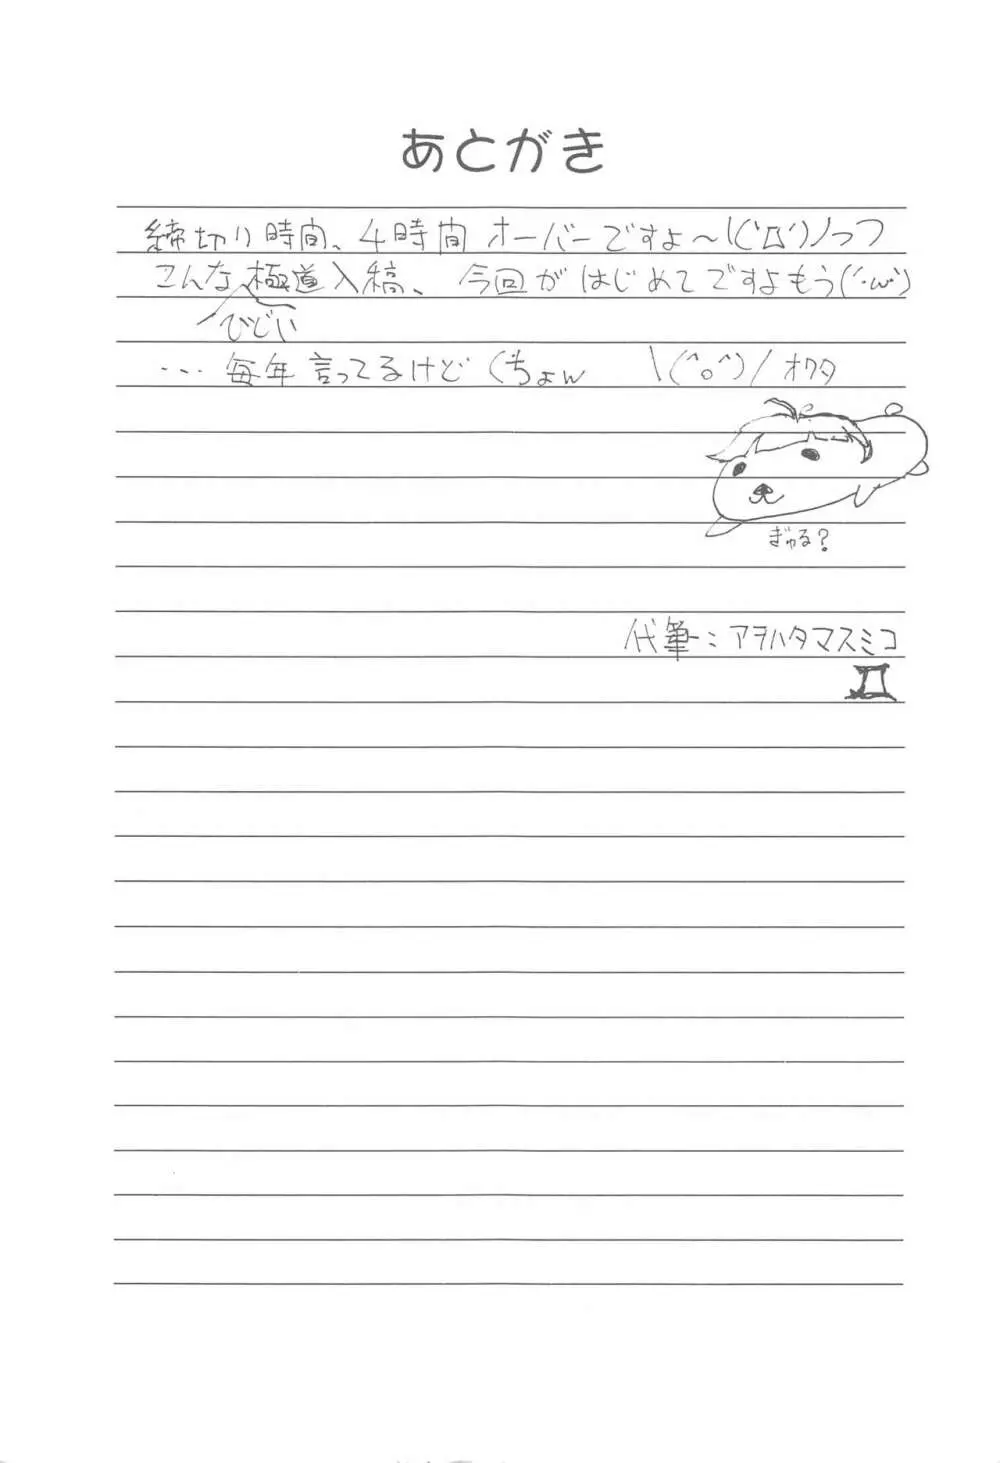 あとがき
締切り時間、4時間オーバーですよ～\(ﾟДﾟ)ﾉっフ
こんな極道入稿、今回がはじめてですよもう(´･ω･`)
ひどい
… 毎年言ってるけど くちょん \(^o^)/オワタ
ぎゅる?
代筆:アヲハタマスミコ